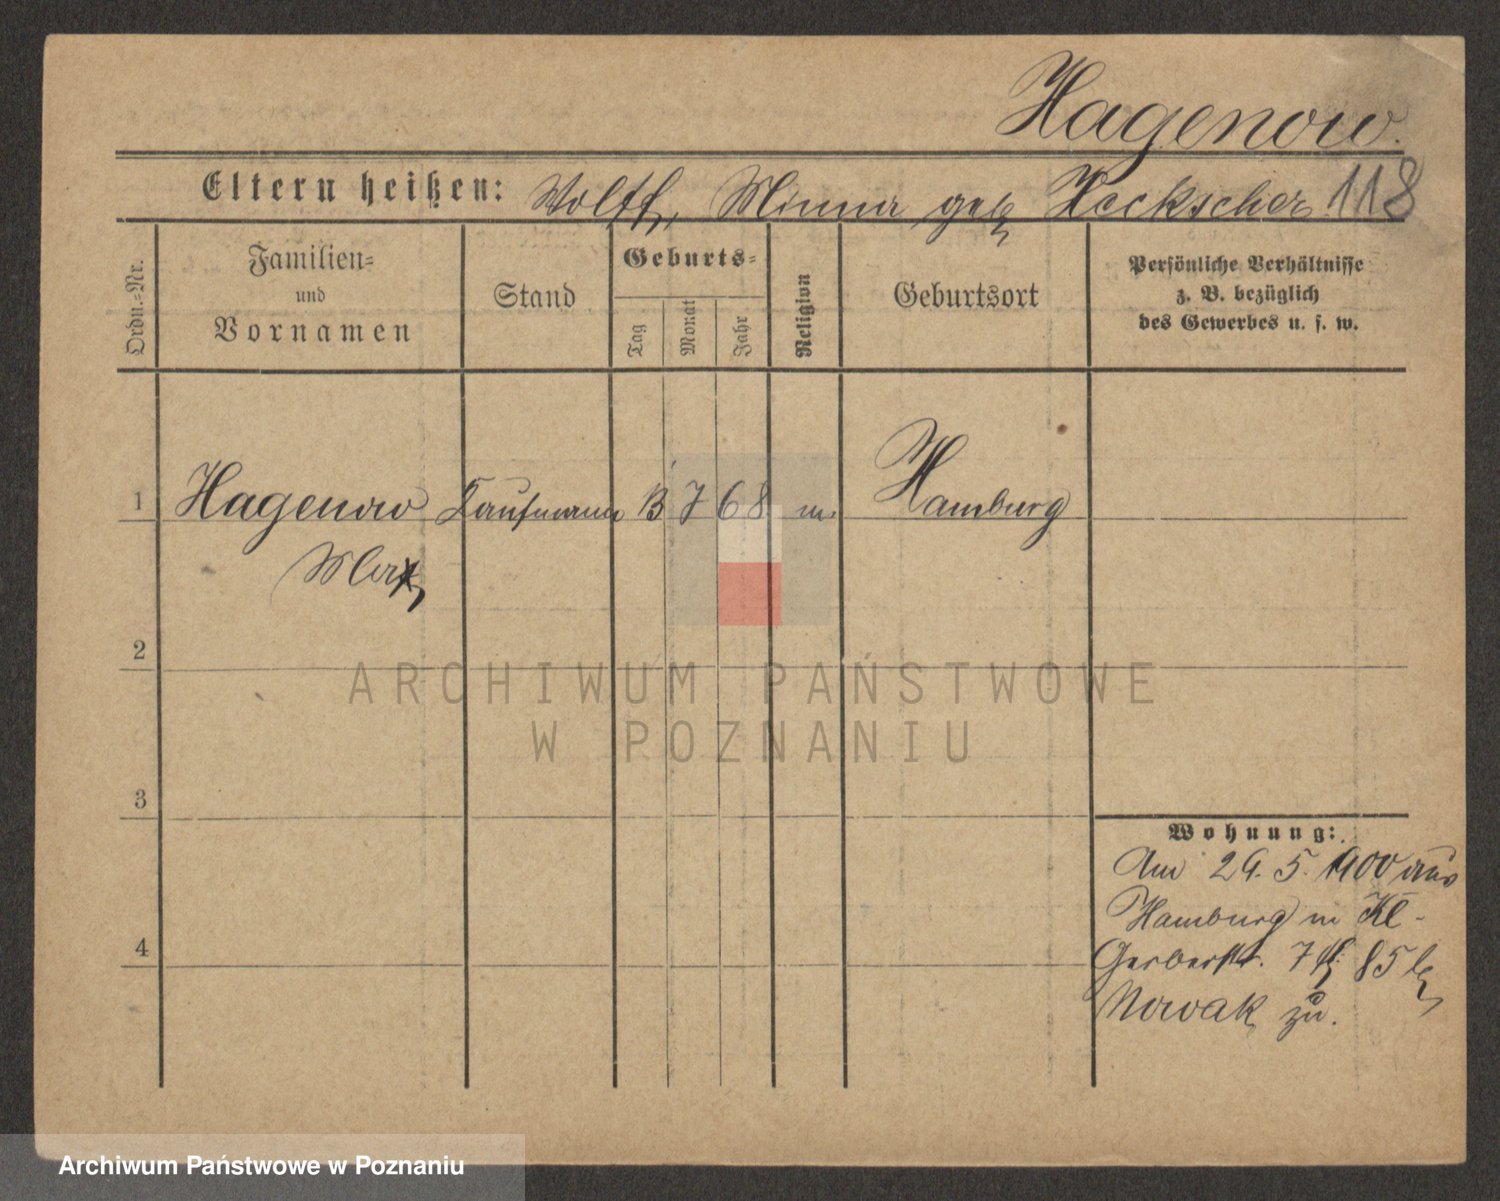 Hagenow.
Eltern heißen: Wolff, Minna geb. Heckscher 118
Ordn.-Nr.
Familien-
und
Vornamen
Stand
Geburts-
Tag
Monat
Jahr
Religion
Geburtsort
Persönliche Verhältnisse
z. B. bezüglich
des Gewerbes u. s. w.
1 Hagenow Kaufmann 13 7 68 m. Hamburg
Max
2
ARCHIWUM PAŃSTWOWE
W POZNANIU
3
Wohnung:
Am 29. 5. 1900 aus
Hamburg in Kl-
4
Gerberstr. 7 85 b
Nowak zu.
Archiwum Państwowe w Poznaniu